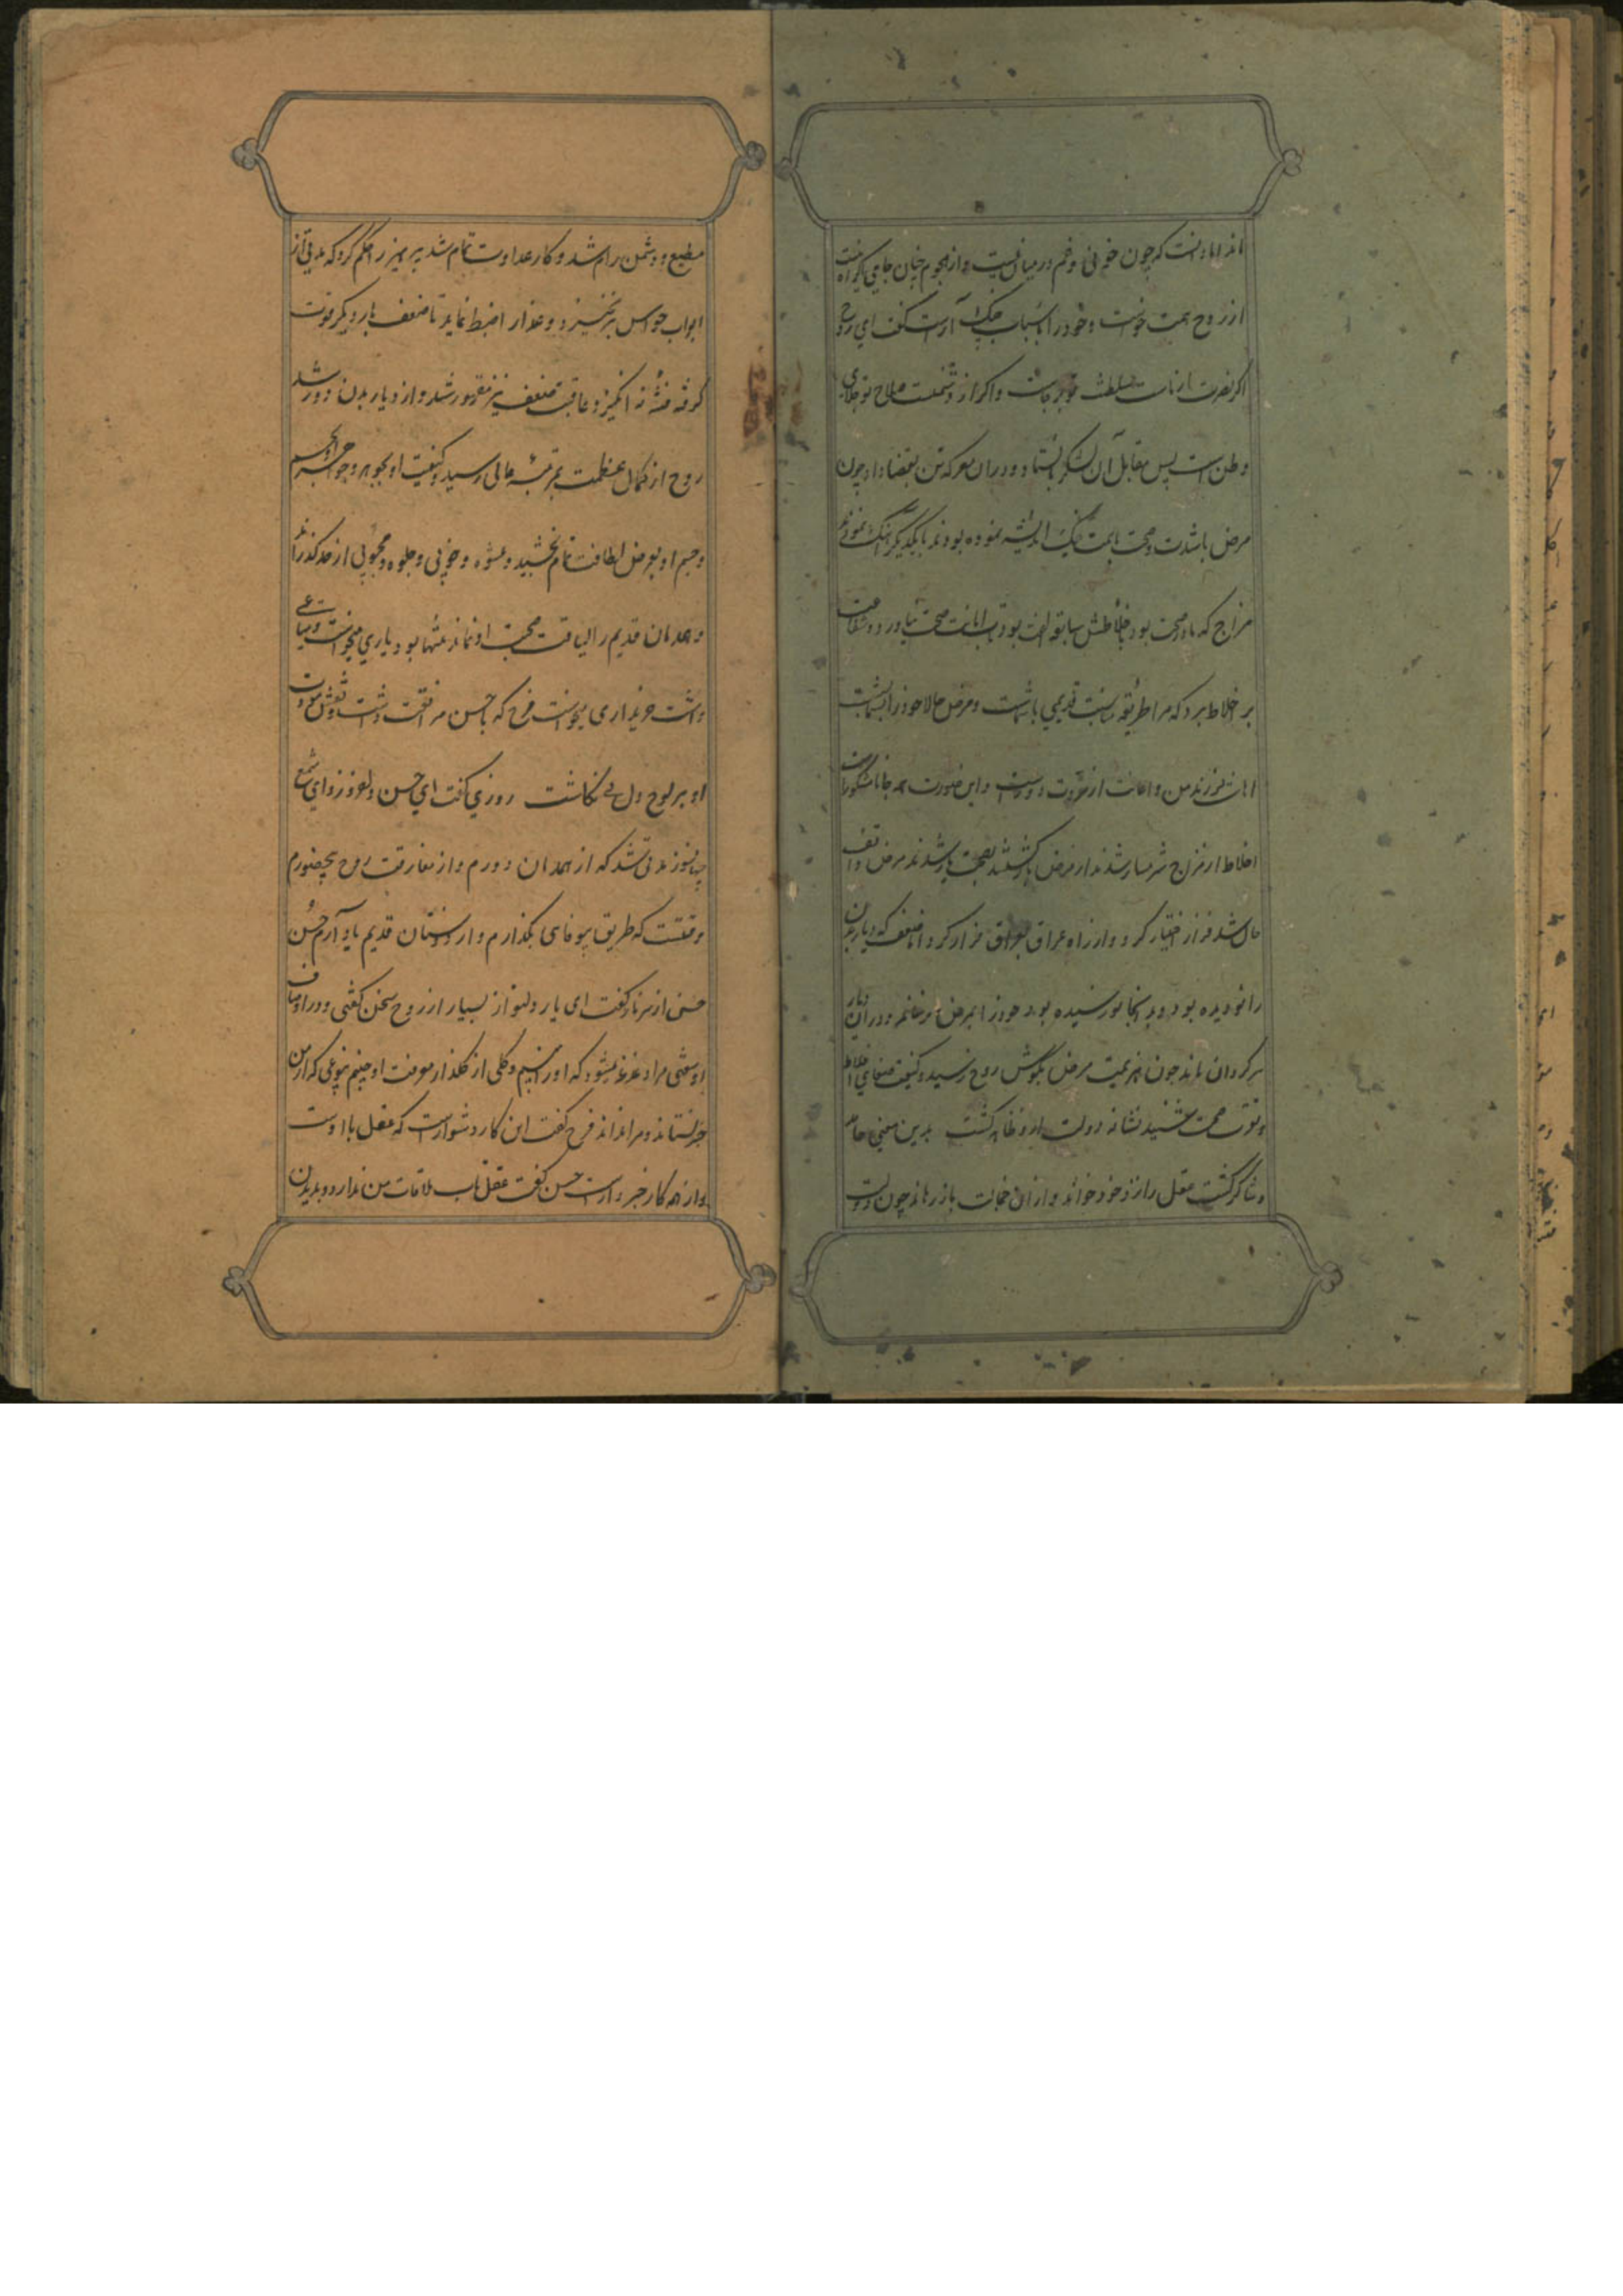 اند اما دانست که چون خوفی و غم در میان نیست و از هجوم چنان جای گریختن
از روح همت خواست و خود را باسباب جنک آراست گفت ای روح
اگر نصرت از ماست سلطنت تو برجاست و اگر از دشمنست صلاح تو جلای
وطن است پس مقابل آن لشکر بایستاد و دران معرکه تن بقضا داد چون
مرض باشدت و صحت باهمت جنگ اندیشه نموده بودند با یکدیگر آهنگ نمودند
مزاج که مادر صحت بود با اخلاطش سابقه الفت بود تاب اهانت صحت نیاورد و شفاعت
بر اخلاط برد که مرا طریقه نسبت قدیمی با شماست و مرض حالا خود را بشما بست
اهانت فرزند من و اعانت از مروت دور است و این صورت همه جا نامشکور است
اخلاط از مزاج شرمسار شدند از مرض بازگشتند بصحت یار شدند مرض واقف
حال شد فرار اختیار کرد و از راه عراق بعراق فرار کرد اما ضعف که دیار بدن
را نودیده بود و بدانجا نورسیده بود خود را بمرض نرساند و دران دیار
سرگردان ماند چون هزیمت مرض بگوش روح رسید و کیفیت صفای اخلاط
و قوت صحت شنید نشانه دولت ازو ظاهر گشت بدین معنی حامد
و شاکر گشت عقل را نزد خود خواند و از ان خجالت باز رهاند چون دوست
مطیع و دشمن رام شد و کار عداوت تمام شد پرهیز را حکم کرد که مدتی از
ابواب حواس برنخیزد و غذا را ضبط نماید تا ضعف بار دیگر قوت
گرفته فتنه نه انگیزد عاقبت ضعف نیز مقهور شد و از دیار بدن دور شد
روح از کمال عظمت بمرتبه عالی رسید و کیفیت او بجوهر و جواهر جسم
و جسم او بعرض لطافت تمام بخشید و عشوه و خوبی و جلوه و محبوبی از حد گذراند
و همدمان قدیم را لیاقت صحبت او نماند تنها بود یاری میخواست و متاعی
داشت خریداری میجست فرح که با حسن مرافقت داشت و نقش مودت
او بر لوح دل می نگاشت روزی گفت ای حسن دلفروز وای شمع
جهانسوز مدتی شد که از همدمان دورم و از مفارقت روح بیحضورم
وقتست که طریق بیوفایی بگذارم و از دوستان قدیم یاد آرم حسن
حسن از سر ناز گفت ای یار دلنواز بسیار از روح سخن گفتی و در اوصاف
او سفتی مرا دغدغه میشود که او را ببینم و گلی از گلذار معرفت او چینم بنوعی که از من
خبر نستاند و مرا نداند فرح گفت این کار دشوار است که عقل با اوست
و از همه کار خبردار است حسن گفت عقل تاب ملاقات من ندارد و بدیدن